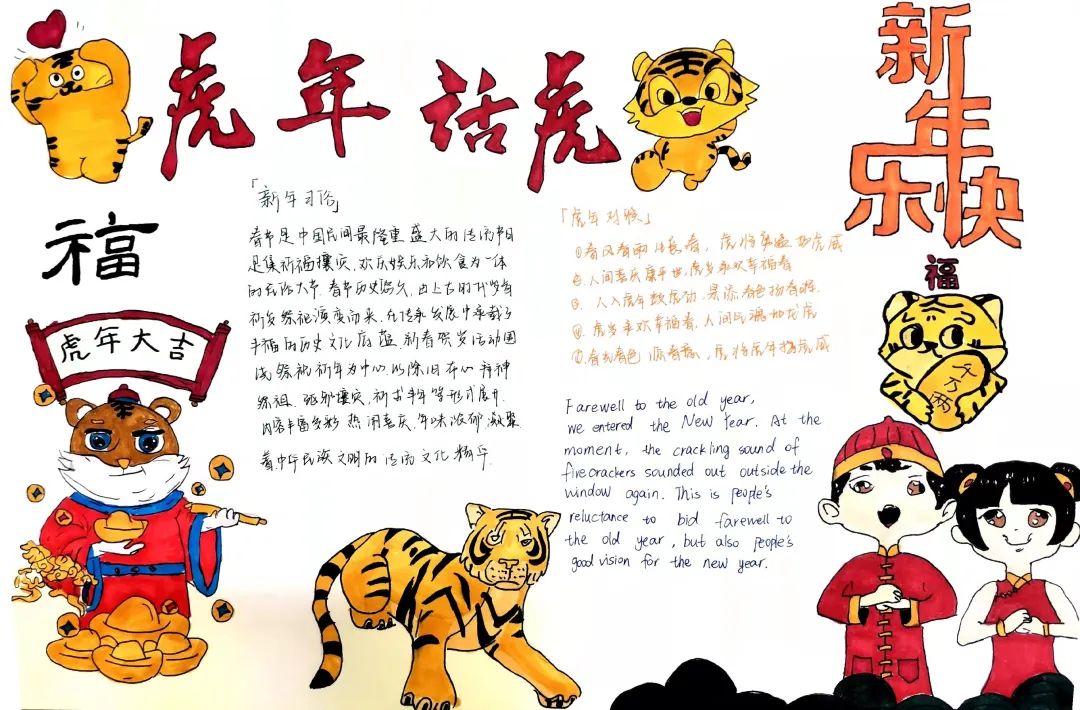 虎年话虎
新年
乐快
福
虎年大吉
「新年习俗」
春节是中国民间最隆重盛大的传统节日
是集祈福攘灾、欢庆娱乐和饮食为一体
的民俗大节。春节历史悠久，由上古时代岁首
祈岁祭祀演变而来，在传承发展中承载了
丰福的历史文化底蕴。新春贺岁活动围
绕祭祀祈年为中心，以除旧布新、拜神
祭祖、驱邪攘灾、祈求丰年等形式展开
内容丰富多彩 热闹喜庆、年味浓郁 凝聚
着中华民族文明的传统文化精华。
「虎年对联」
①春风春雨 春，虎将 虎威
②人间喜庆 ，虎岁承欢幸福春
③ 人入虎年 虎劲，景添春色
④ 虎岁承欢幸福春，人间 如龙虎
春色 ，虎将虎年 虎威
Farewell to the old year,
we entered the New Year. At the
moment, the crackling sound of
firecrackers sounded out outside the
window again. This is people's
reluctance to bid farewell to
the old year, but also people's
good vision for the new year.
福
千万两